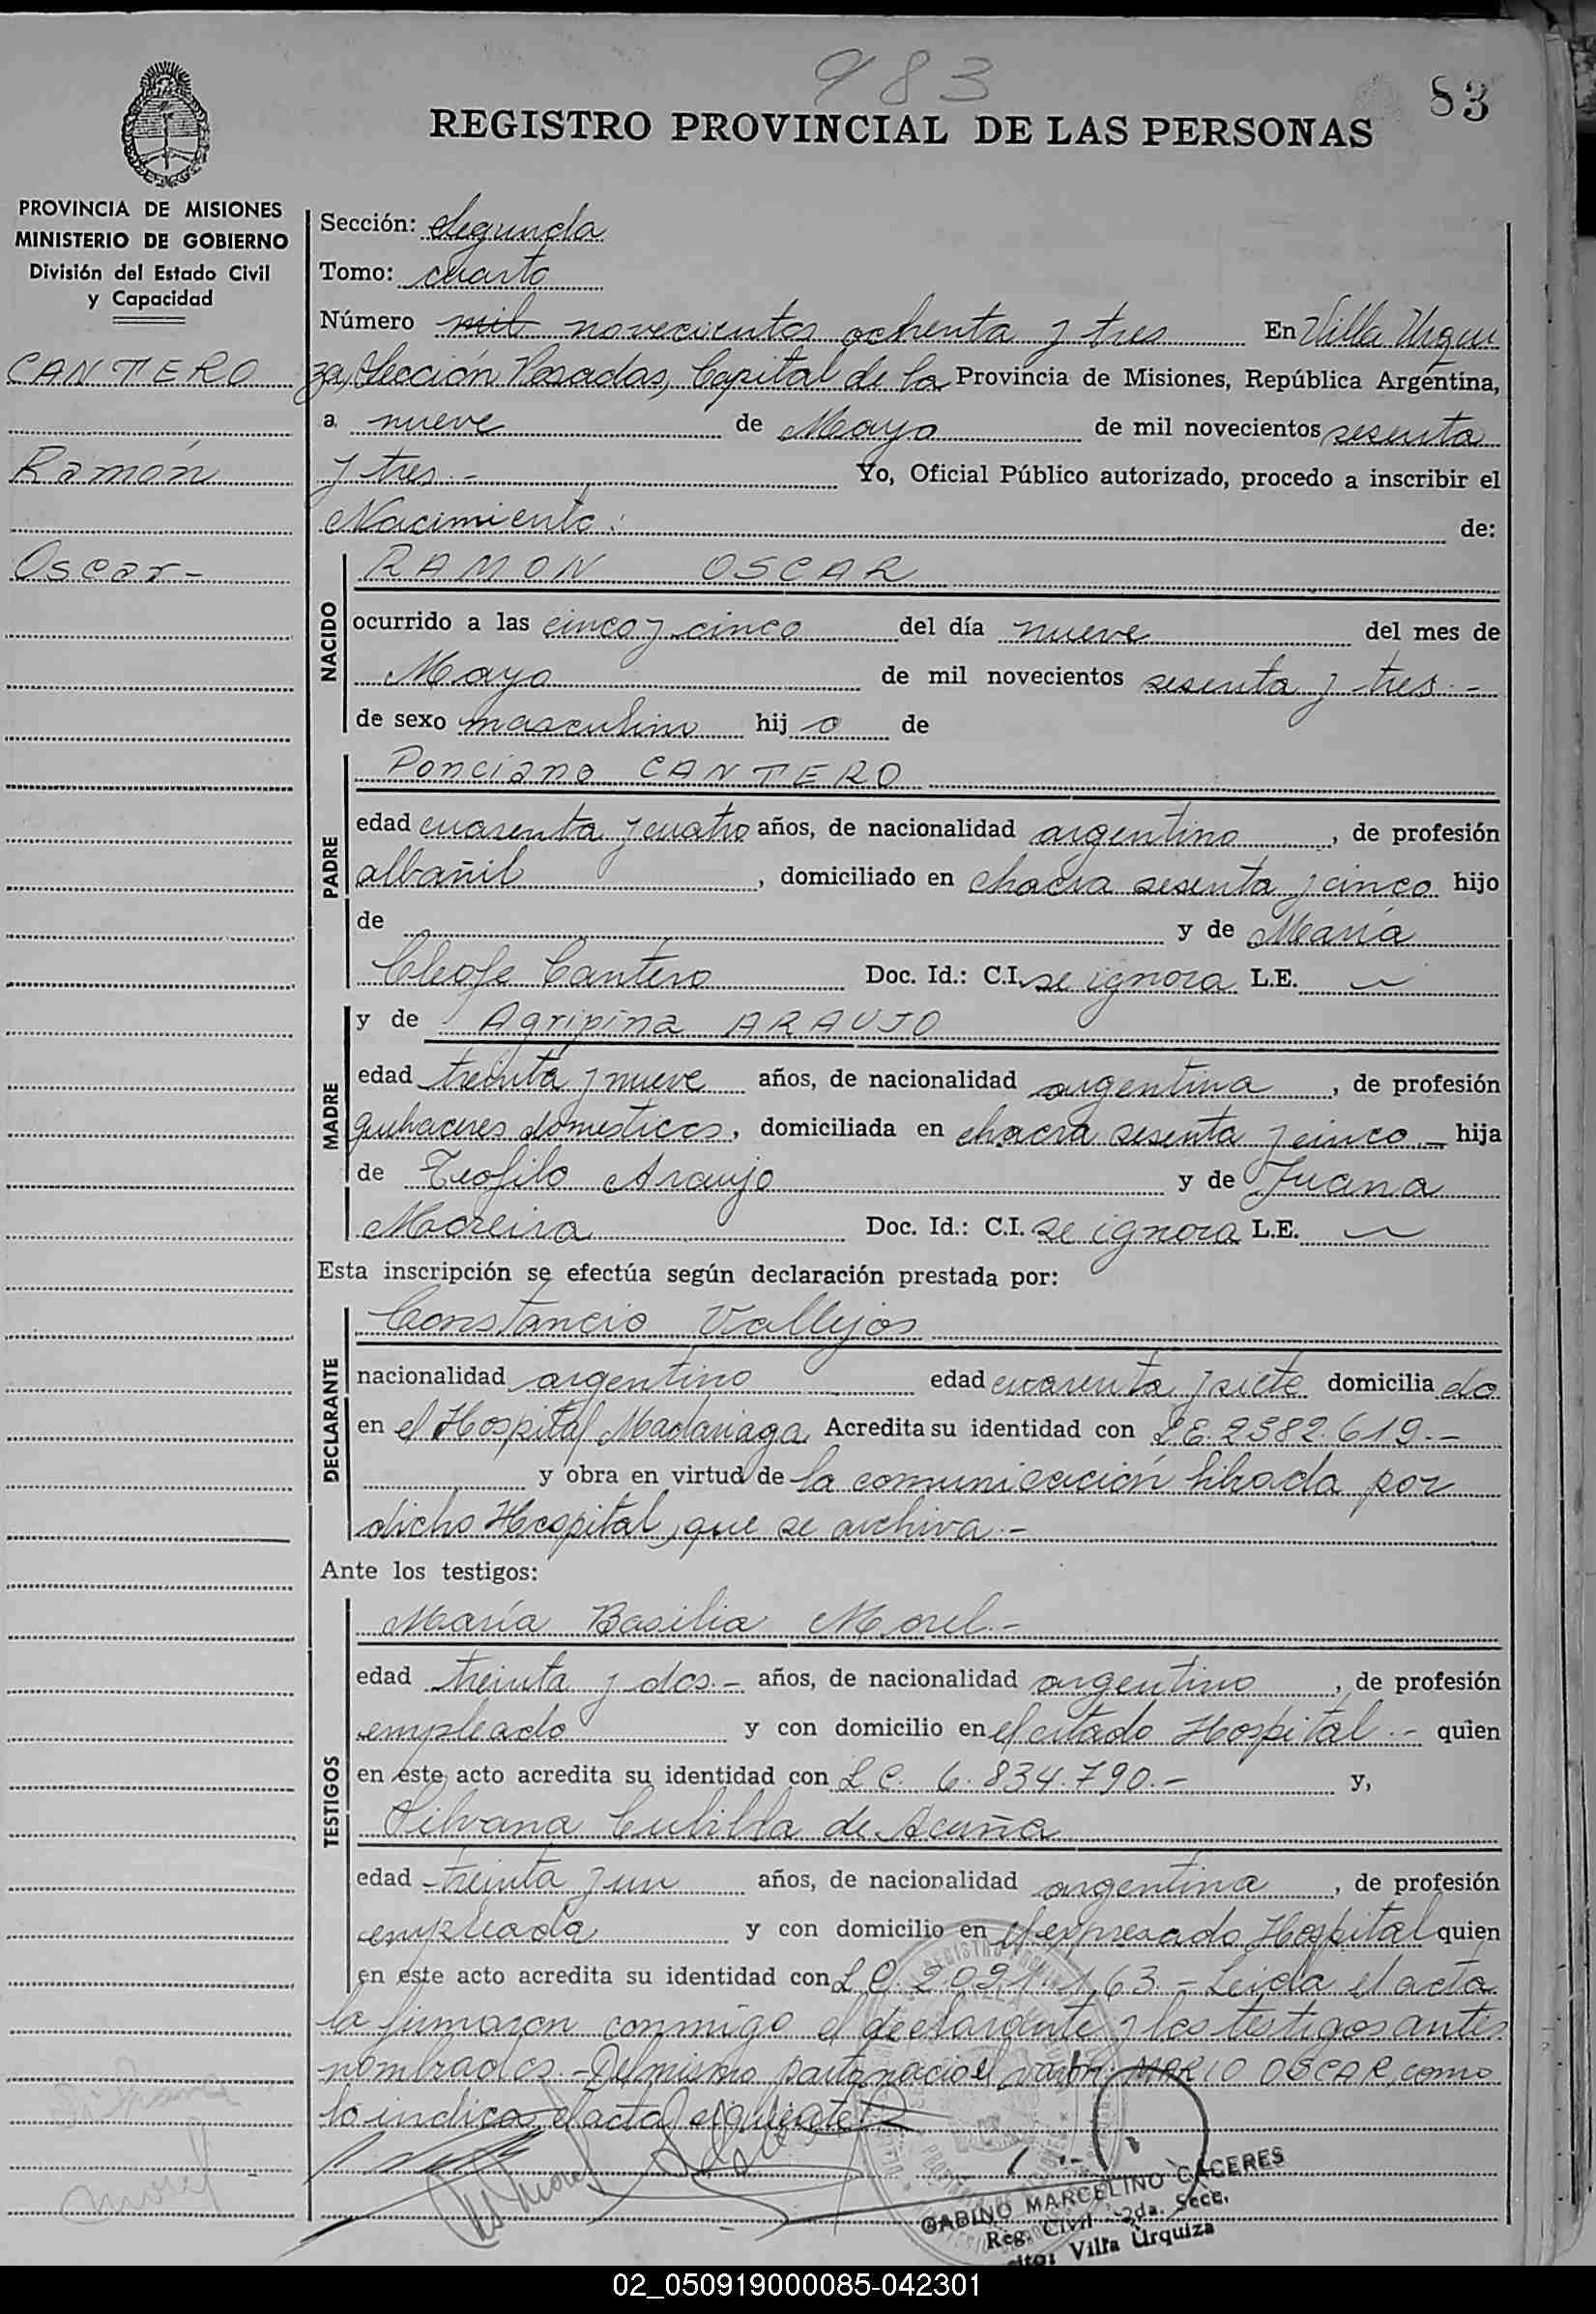 983
83
REGISTRO PROVINCIAL DE LAS PERSONAS
PROVINCIA DE MISIONES
MINISTERIO DE GOBIERNO
División del Estado Civil
y Capacidad
CANTERO
Ramón
Oscar-
Sección: Segunda
Tomo: cuarto
Número mil novecientos ochenta y tres En Villa Urqui
za, Sección Posadas, Capital de la Provincia de Misiones, República Argentina,
a nueve de Mayo de mil novecientos sesenta
y tres.- Yo, Oficial Público autorizado, procedo a inscribir el
Nacimiento: de:
NACIDO
RAMON OSCAR
ocurrido a las cinco y cinco del día nueve del mes de
Mayo de mil novecientos sesenta y tres.-
de sexo masculino hij o de
PADRE
Ponciano CANTERO
edad cuarenta y cuatro años, de nacionalidad argentino, de profesión
albañil, domiciliado en chacra sesenta y cinco hijo
de y de María
Cleofe Cantero Doc. Id.: C.I. se ignora L.E.
MADRE
y de Agripina ARAUJO
edad treinta y nueve años, de nacionalidad argentina, de profesión
quehaceres domesticos, domiciliada en chacra sesenta y cinco — hija
de Teofilo Araujo y de Juana
Moreira Doc. Id.: C.I. se ignora L.E.
Esta inscripción se efectúa según declaración prestada por:
DECLARANTE
Constancio Vallejos
nacionalidad argentino edad cuarenta y siete domicilia do
en el Hospital Madariaga Acredita su identidad con L.E. 2582.619.-
y obra en virtud de la comunicación librada por
dicho Hospital, que se archiva.-
Ante los testigos:
TESTIGOS
María Basilia Morel.-
edad treinta y dos.- años, de nacionalidad argentino, de profesión
empleado y con domicilio en el citado Hospital.- quien
en este acto acredita su identidad con L C. 6.834.790.- y,
Silvana Cubilla de Acuña
edad treinta y un años, de nacionalidad argentina, de profesión
empleada y con domicilio en el expresado Hospital quien
en este acto acredita su identidad con L C. 2.091.163.- Leida el acta
la firmaron conmigo el declarante y los testigos antes
nombrados.- Del mismo parto nació el varón MARIO OSCAR, como
lo indica el acta siguiente
Silvana
Morel
M Morel
GABINO MARCELINO CACERES
Reg. Civil 2da. Secc.
Villa Urquiza
02_050919000085-042301